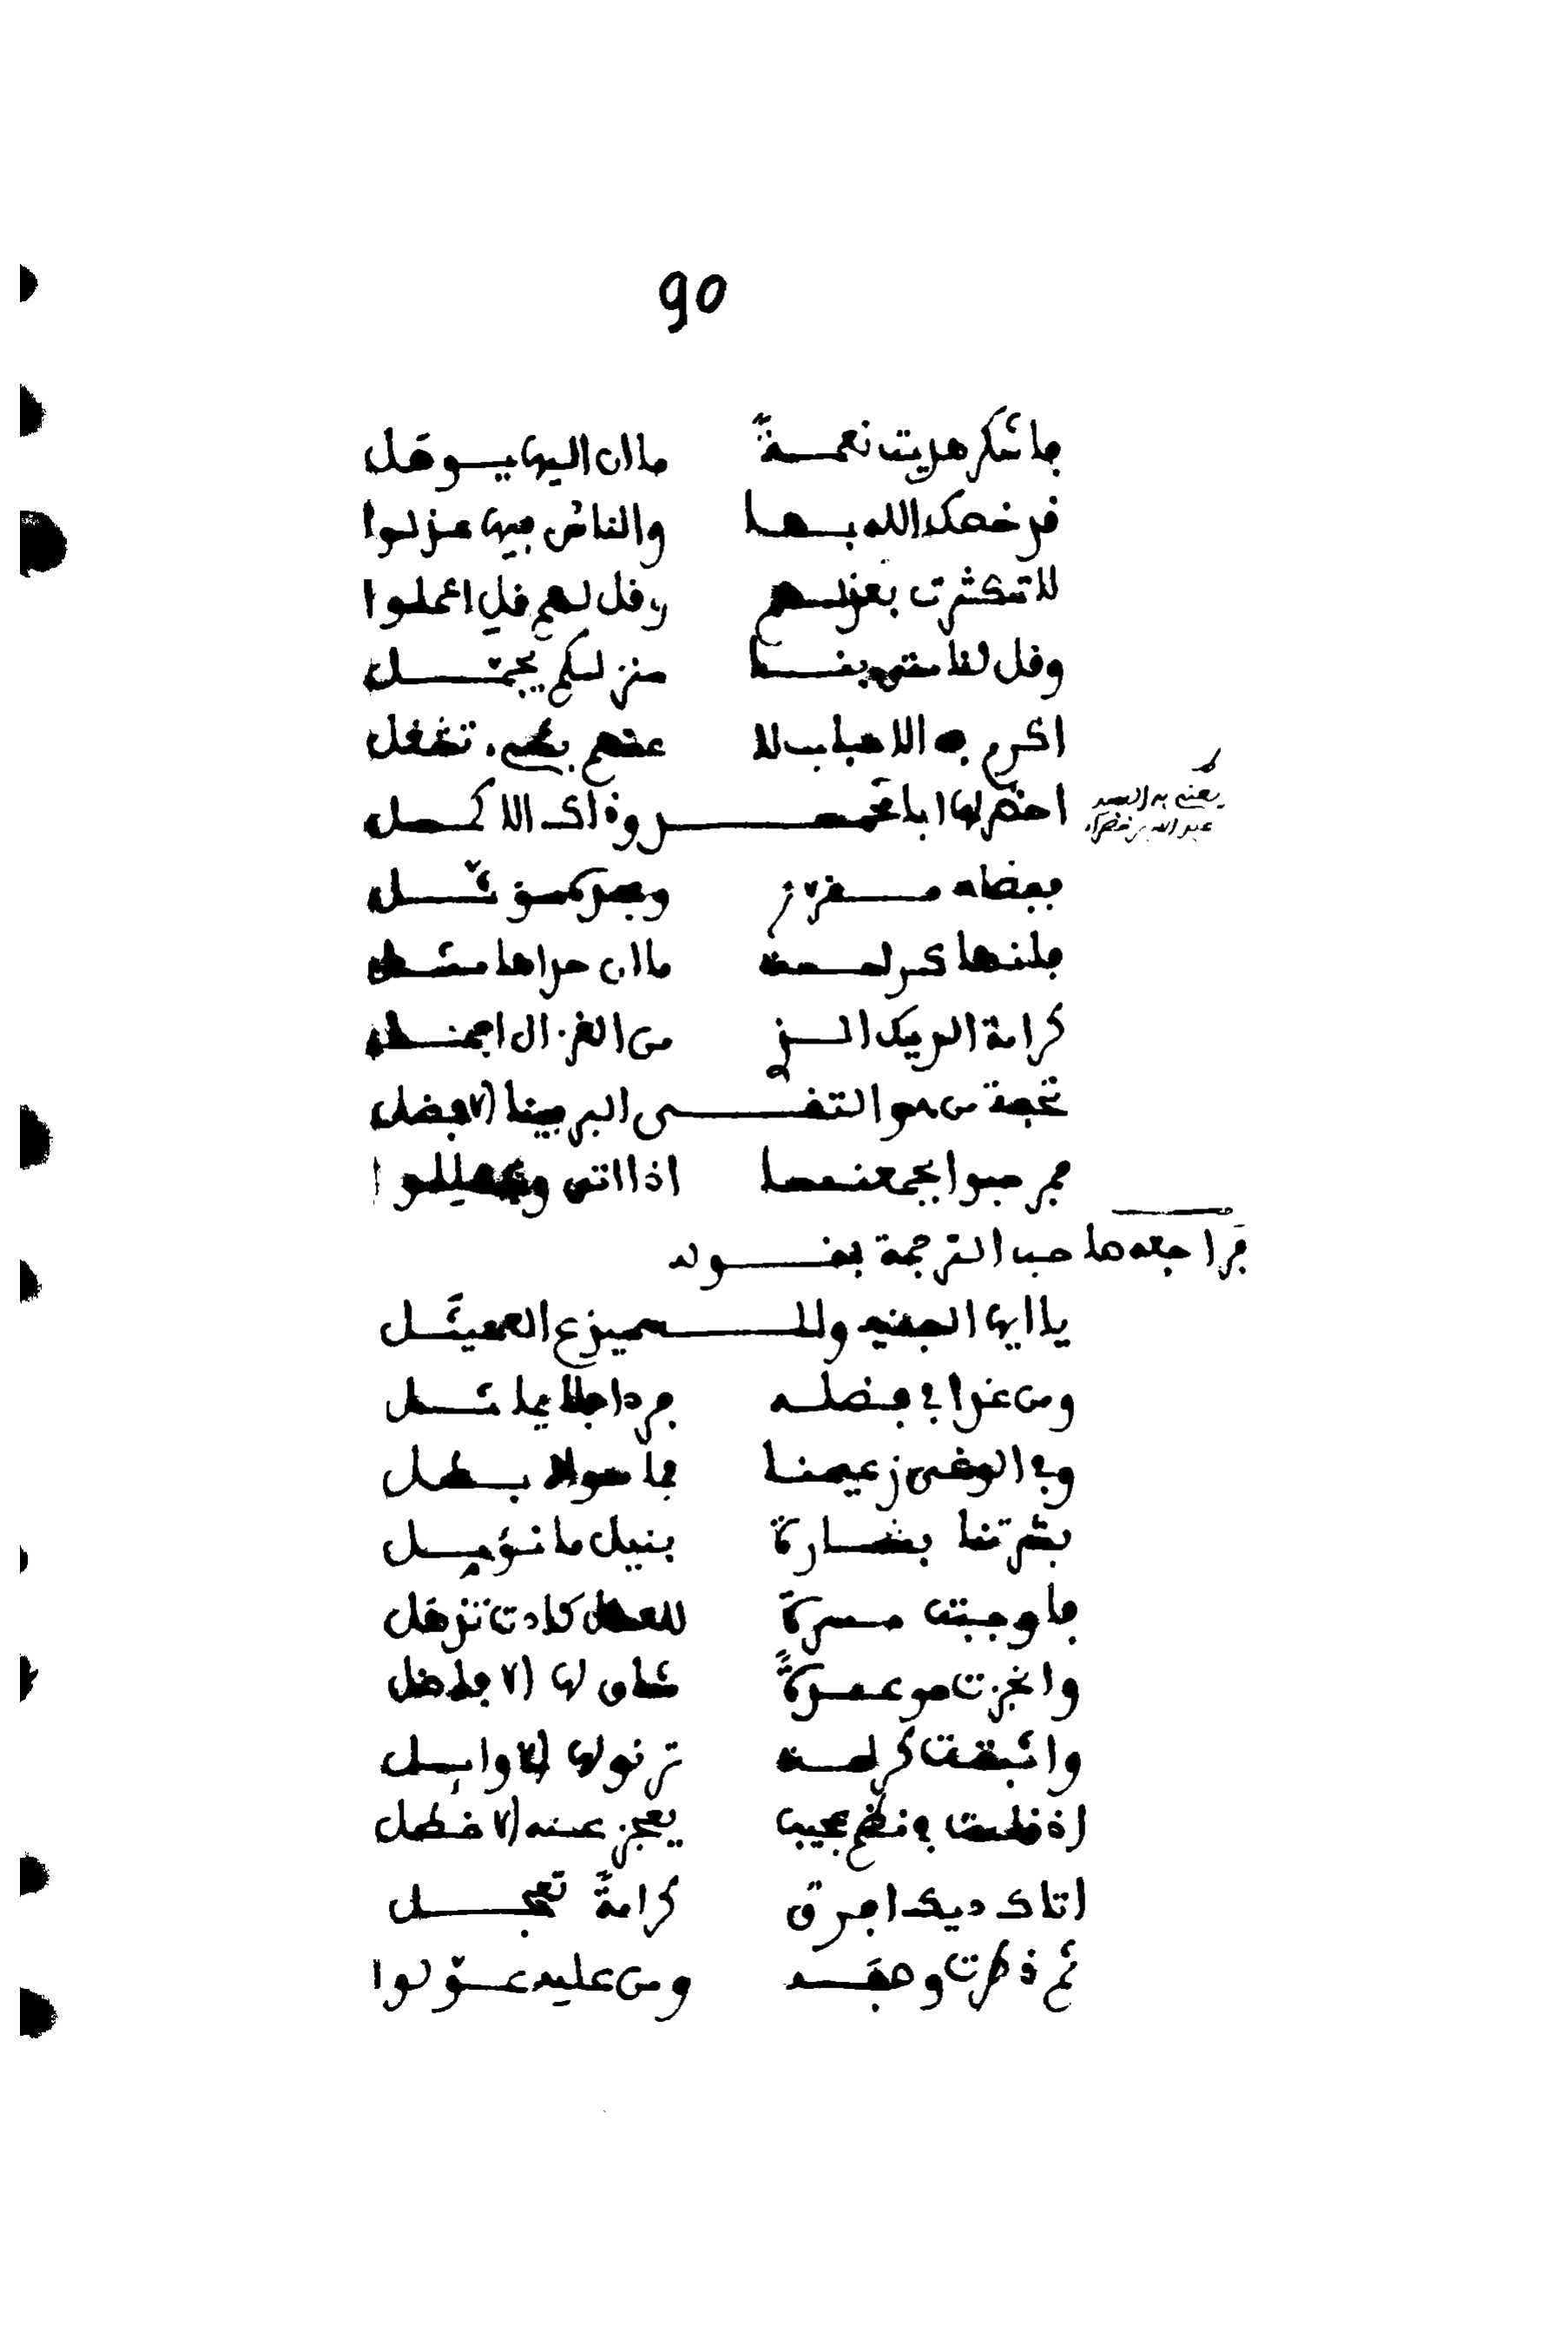 90
فاشكر هديت نعمةً ما ان اليها يوصل
قد خصك الله بها والناس فيها عزلوا
لا تكثرت بعزلهم وقل لهم قلي اعملوا
وقل لنا متى بنا منزلكم يحمّل
اكرم به الاحباب لا عنهم تغفل
احضر لها ابا محمد وذاك الاكمل
يعني به السيد
عبد الله بن خضراء
فقضاه وبدركم
فلنها كريمة ما ان
كرامة الديك الذ من الغزال اجمل
تحية من هو التقى البر فينا الافضل
فرحبوا بجمعنا اذا اتى وهللوا
فراجعه صاحب الترجمة بقوله
يا ايها الفقيه والسميذع العميثل
ومن غدا في فضله فردا فلا يماثل
وفي الوغى زعيمنا فما سواه بطل
بشرتنا بشارة بنيل ما نؤمل
فاوجبت مسرة للعقل كادت تذهل
وانجزت موعدةً لها الافاضل
واثبتت كريمة ترنو لها الاوايل
اذ نظمت في نظم عجيب يعجز عنه الاخطل
اتاك ديك افرق كرامةً تعجل
ثم ذكرت وصفه ومن عليه عوّلوا